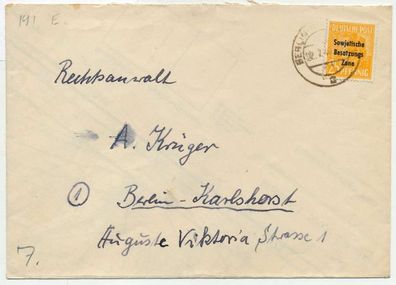 191 E.
DEUTSCHE POST
Sowjetische
Besatzungs
Zone
PFENNIG
BERLIN
Rechtsanwalt
A. Krüger
1 Berlin-Karlshorst
Auguste Viktoria Strasse 1
7.